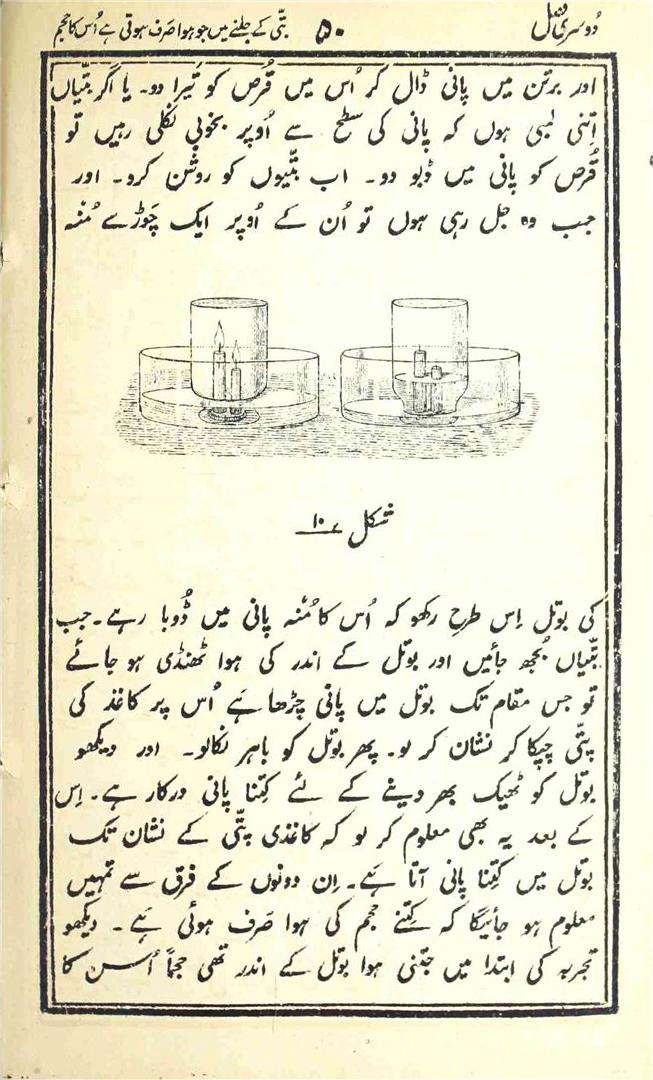 دُوسری فصل ۵۰ بتّی کے جلنے میں جو ہوا صَرف ہوتی ہے اُس کا حجم
اور برتن میں پانی ڈال کر اُس میں قُرص کو تَیرا دو۔ یا اگر بتّیاں
اِتنی لمبی ہوں کہ پانی کی سطح سے اُوپر بخوبی نکلی رہیں تو
قُرص کو پانی میں ڈبو دو۔ اب بتّیوں کو روشن کرو۔ اور
جب وہ جل رہی ہوں تو اُن کے اُوپر ایک چَوڑے مُنہ
شکل ۱۰
کی بوتل اِس طرح رکھو کہ اُس کا مُنہ پانی میں ڈُوبا رہے۔ جب
بتّیاں بُجھ جائیں اور بوتل کے اندر کی ہوا ٹھنڈی ہو جائے
تو جس مقام تک بوتل میں پانی چڑھا ہَے اُس پر کاغذ کی
پتّی چپکا کر نشان کر لو۔ پھر بوتل کو باہر نکالو۔ اور دیکھو
بوتل کو ٹھیک بھر دینے کے لئے کِتنا پانی درکار ہے۔ اِس
کے بعد یہ بھی معلوم کر لو کہ کاغذی پتّی کے نشان تک
بوتل میں کِتنا پانی آتا ہَے۔ اِن دونوں کے فرق سے تمہیں
معلوم ہو جائیگا کہ کِتنے حجم کی ہوا صَرف ہوئی ہَے۔ دیکھو
تجربہ کی ابتدا میں جتنی ہوا بوتل کے اندر تھی حجماً اُس کا